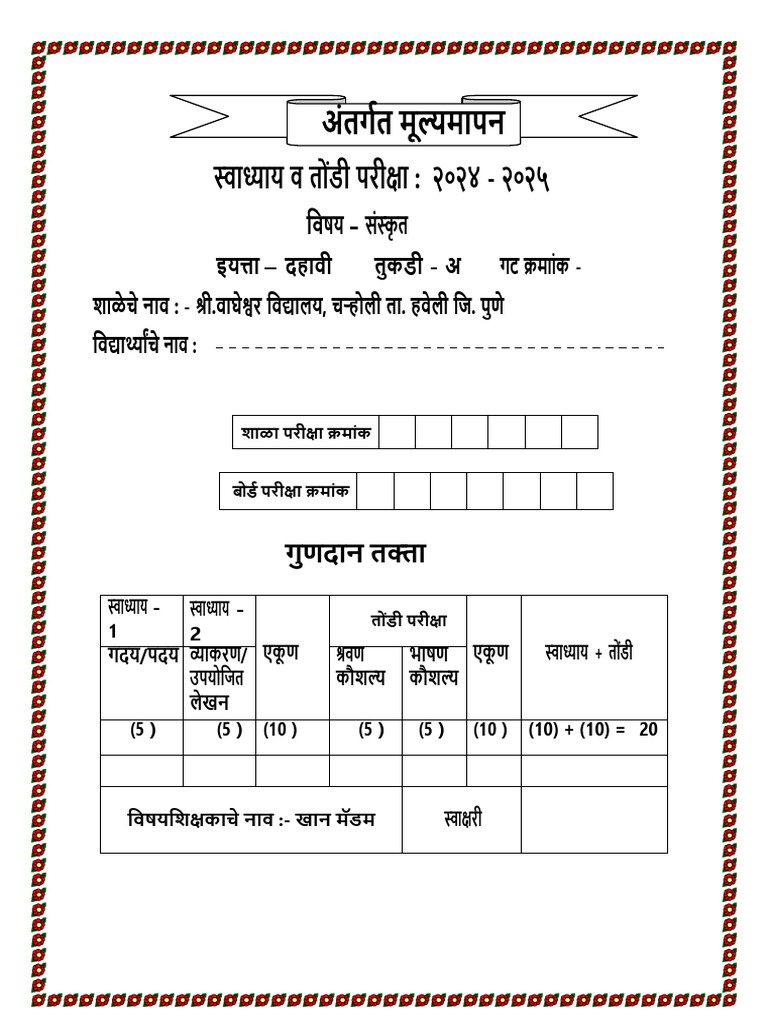 अंतर्गत मूल्यमापन
स्वाध्याय व तोंडी परीक्षा : २०२४ - २०२५
विषय – संस्कृत
इयत्ता – दहावी तुकडी - अ गट क्रमाांक -
शाळेचे नाव : - श्री.वाघेश्वर विद्यालय, चऱ्होली ता. हवेली जि. पुणे
विद्यार्थ्यांचे नाव :
शाळा परीक्षा क्रमांक
बोर्ड परीक्षा क्रमांक
गुणदान तक्ता
स्वाध्याय – 1
स्वाध्याय – 2
एकूण
तोंडी परीक्षा
एकूण
स्वाध्याय + तोंडी
गदय/पदय
व्याकरण/
उपयोजित
लेखन
श्रवण
कौशल्य
भाषण
कौशल्य
(5 ) (5 ) (10 ) (5 ) (5 ) (10 ) (10) + (10) = 20
विषयशिक्षकाचे नाव :- खान मॅडम स्वाक्षरी